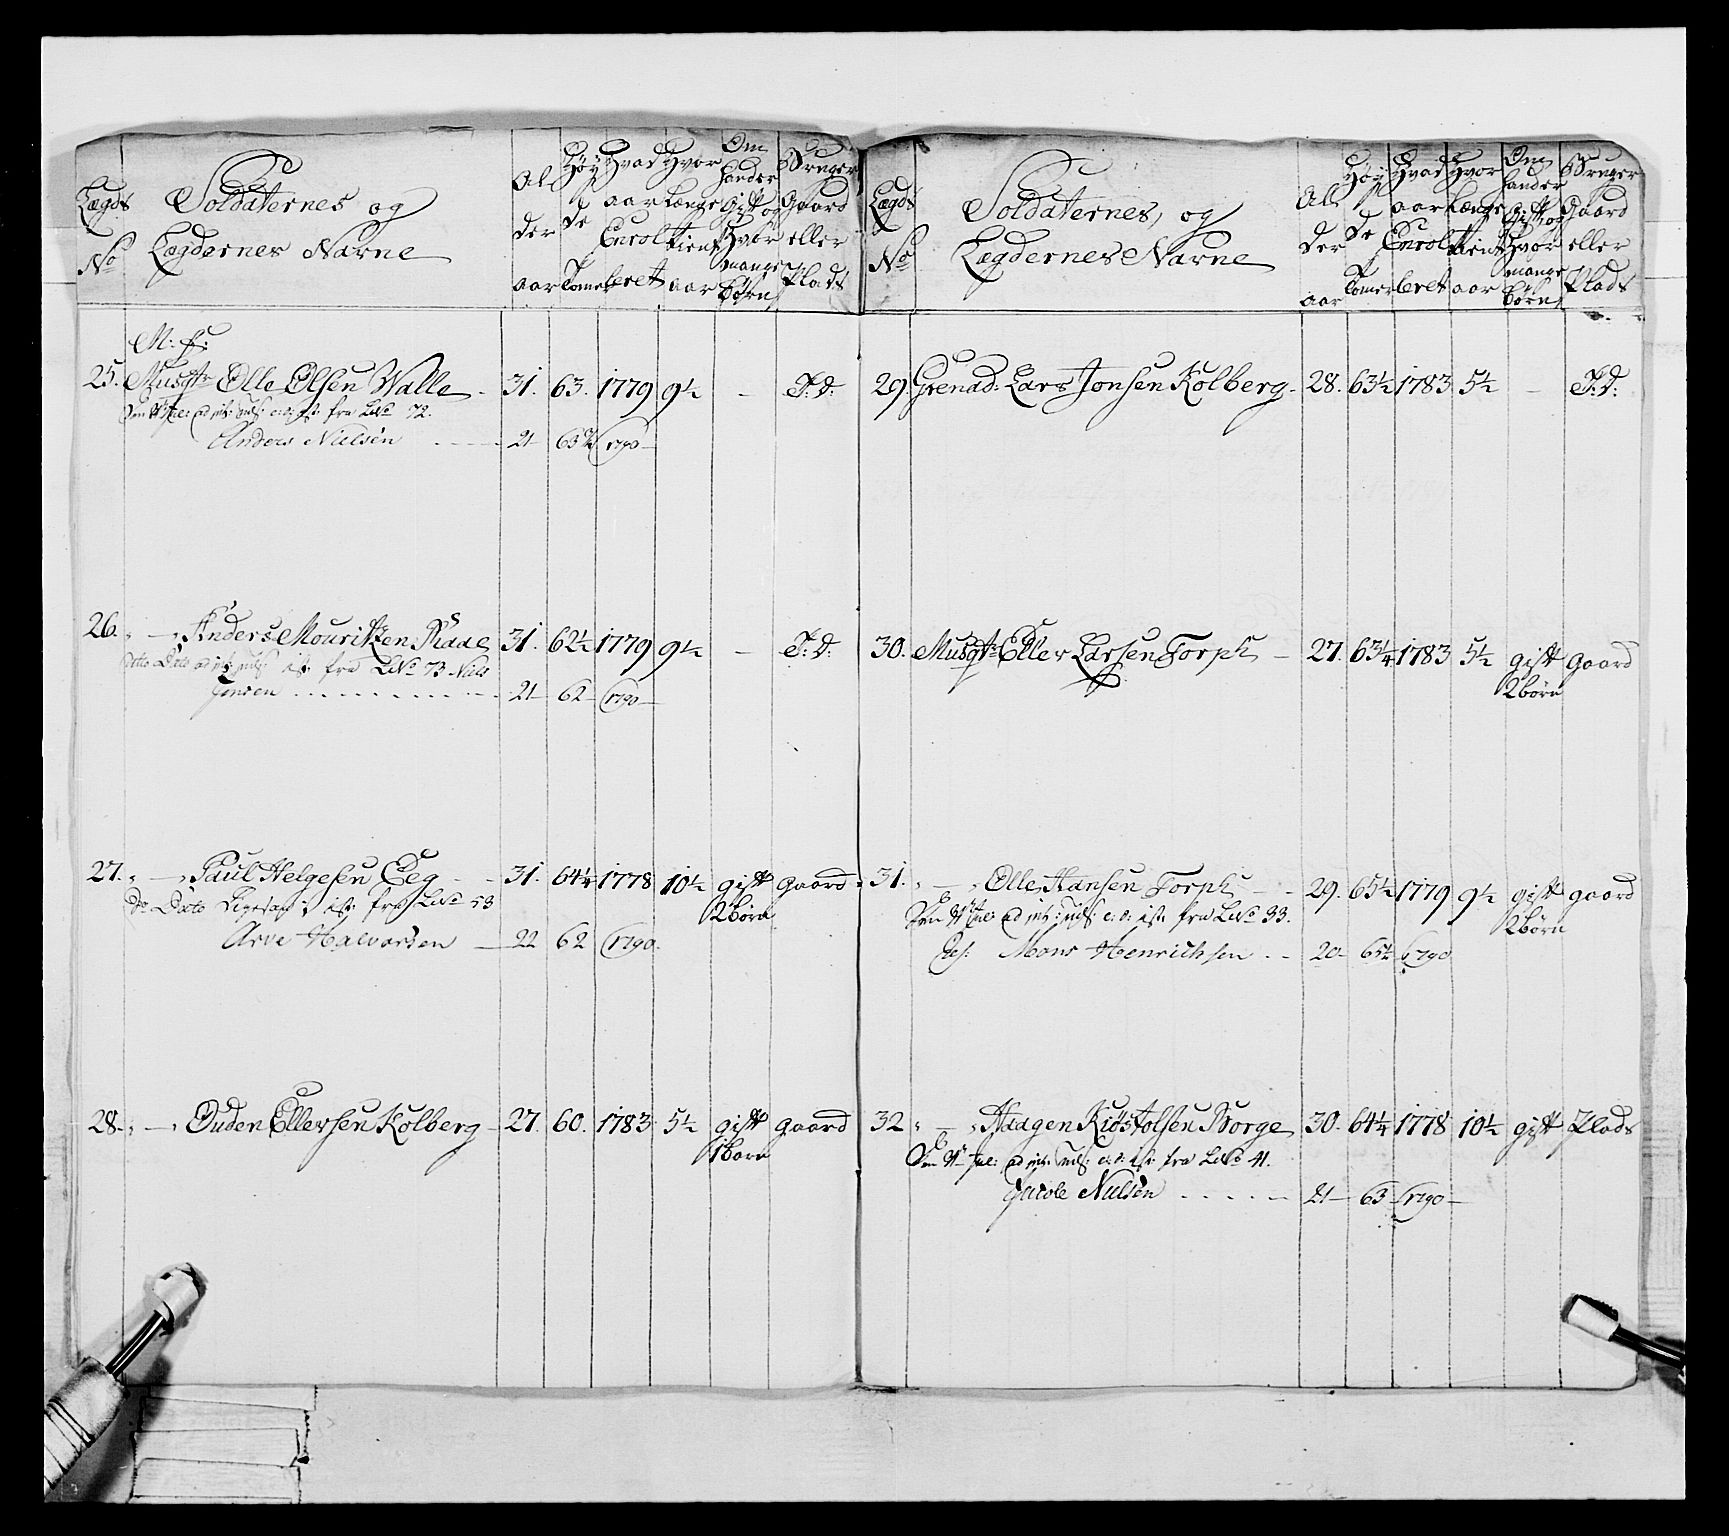 Lægds
No
Soldaternes og
Lægdernes Navne
Al
der
aar
Høy
de
Tomer
Hvad
aar
Enrol
leret
Hvor
Længe
tient
aar
Om
hander
Gift og
Hvor
mange
børn
Bruger
Gaard
eller
Plads
M: f:
25. Musqtr Olle Olsen Walle - 31. 63. 1779 9½ - J: D:
fra LNo 72.
Anders Nielsen - - - - 21 63¾ 1790
26. " — " Anders Mouritzen Raae 31. 62½ 1779 9½ - J: D:
dito Dato fra LNo 73 Niels
Jensen - - - - 21 62 1790
27. " — " Paul Helgesen Eeg - - 31. 64¼ 1778 10½ gift gaard
2 børn
do Dato fra LNo 53
Arve Halvorsen — 22 62 1790
28. " — " Ouden Ellevsen Kolberg - 27. 60. 1783 5½ gift gaard
1 barn
Lægds
No
Soldaternes, og
Lægdernes Navne
Al
der
aar
Høy
de
Tomer
Hvad
aar
Enrol
leret
Hvor
Længe
tient
aar
Om
hander
Gift og
Hvor
mange
børn
Bruger
Gaard
eller
Plads
29. Grenad: Lars Jonsen Kolberg - 28. 63½ 1783 5½ - J: D:
30. Musqtr Ellev Larsen Torph - 27. 63¼ 1783 5½ gift gaard
2 børn
31. " — " Olle Hansen Torph - - 29. 65½ 1779 9½ gift gaard
2 børn
fra LNo 33.
Mons Henrichsen - - 20 65½ 1790
32 " — " Aagen Kiøstolsen Borge 30. 64¼ 1778 10½ gift Plads
fra LNo 41.
Jacob Nielsen - - - - 21 63 1790